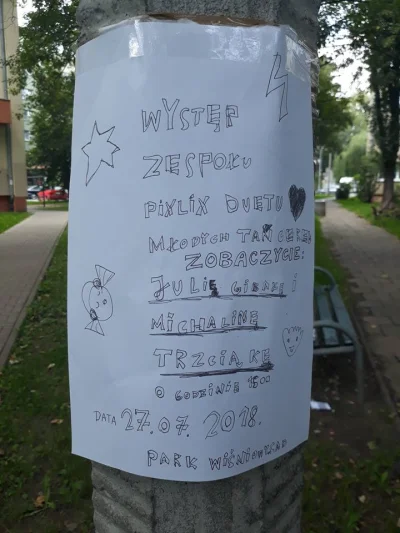 WYSTĘP
ZESPOŁU
PIXLIX DUETU
MŁODYCH TANCEREK
ZOBACZYCIE:
JULIE i
MICHALINĘ
TRZCIĄKĘ
O GODZINIE 15:00
DATA 27.07.2018.
PARK